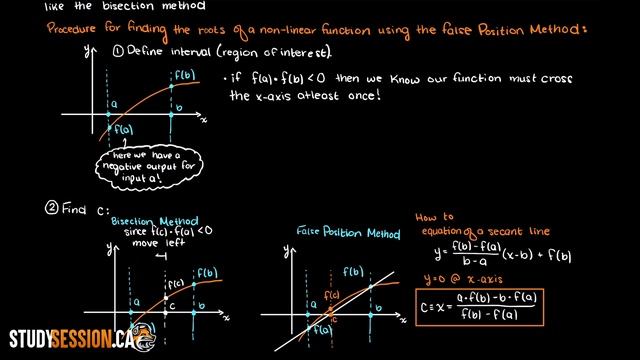 like the bisection method
Procedure for finding the roots of a non-linear function using the false Position Method:
① Define interval (region of interest).
y
f(b)
a
b
x
f(a)
• if f(a)·f(b)<0 then we know our function must cross
the x-axis atleast once!
here we have a
negative output for
input a!
② Find c:
Bisection Method
since f(c)·f(a)<0
move left
y
f(b)
f(c)
a
c
b
x
False Position Method
y
f(b)
f(c)
a
c
b
x
f(a)
How to
equation of a secant line
y = f(b)-f(a) / b-a (x-b) + f(b)
y=0 @ x-axis
c = x = a·f(b)-b·f(a) / f(b)-f(a)
STUDYSESSION.CA